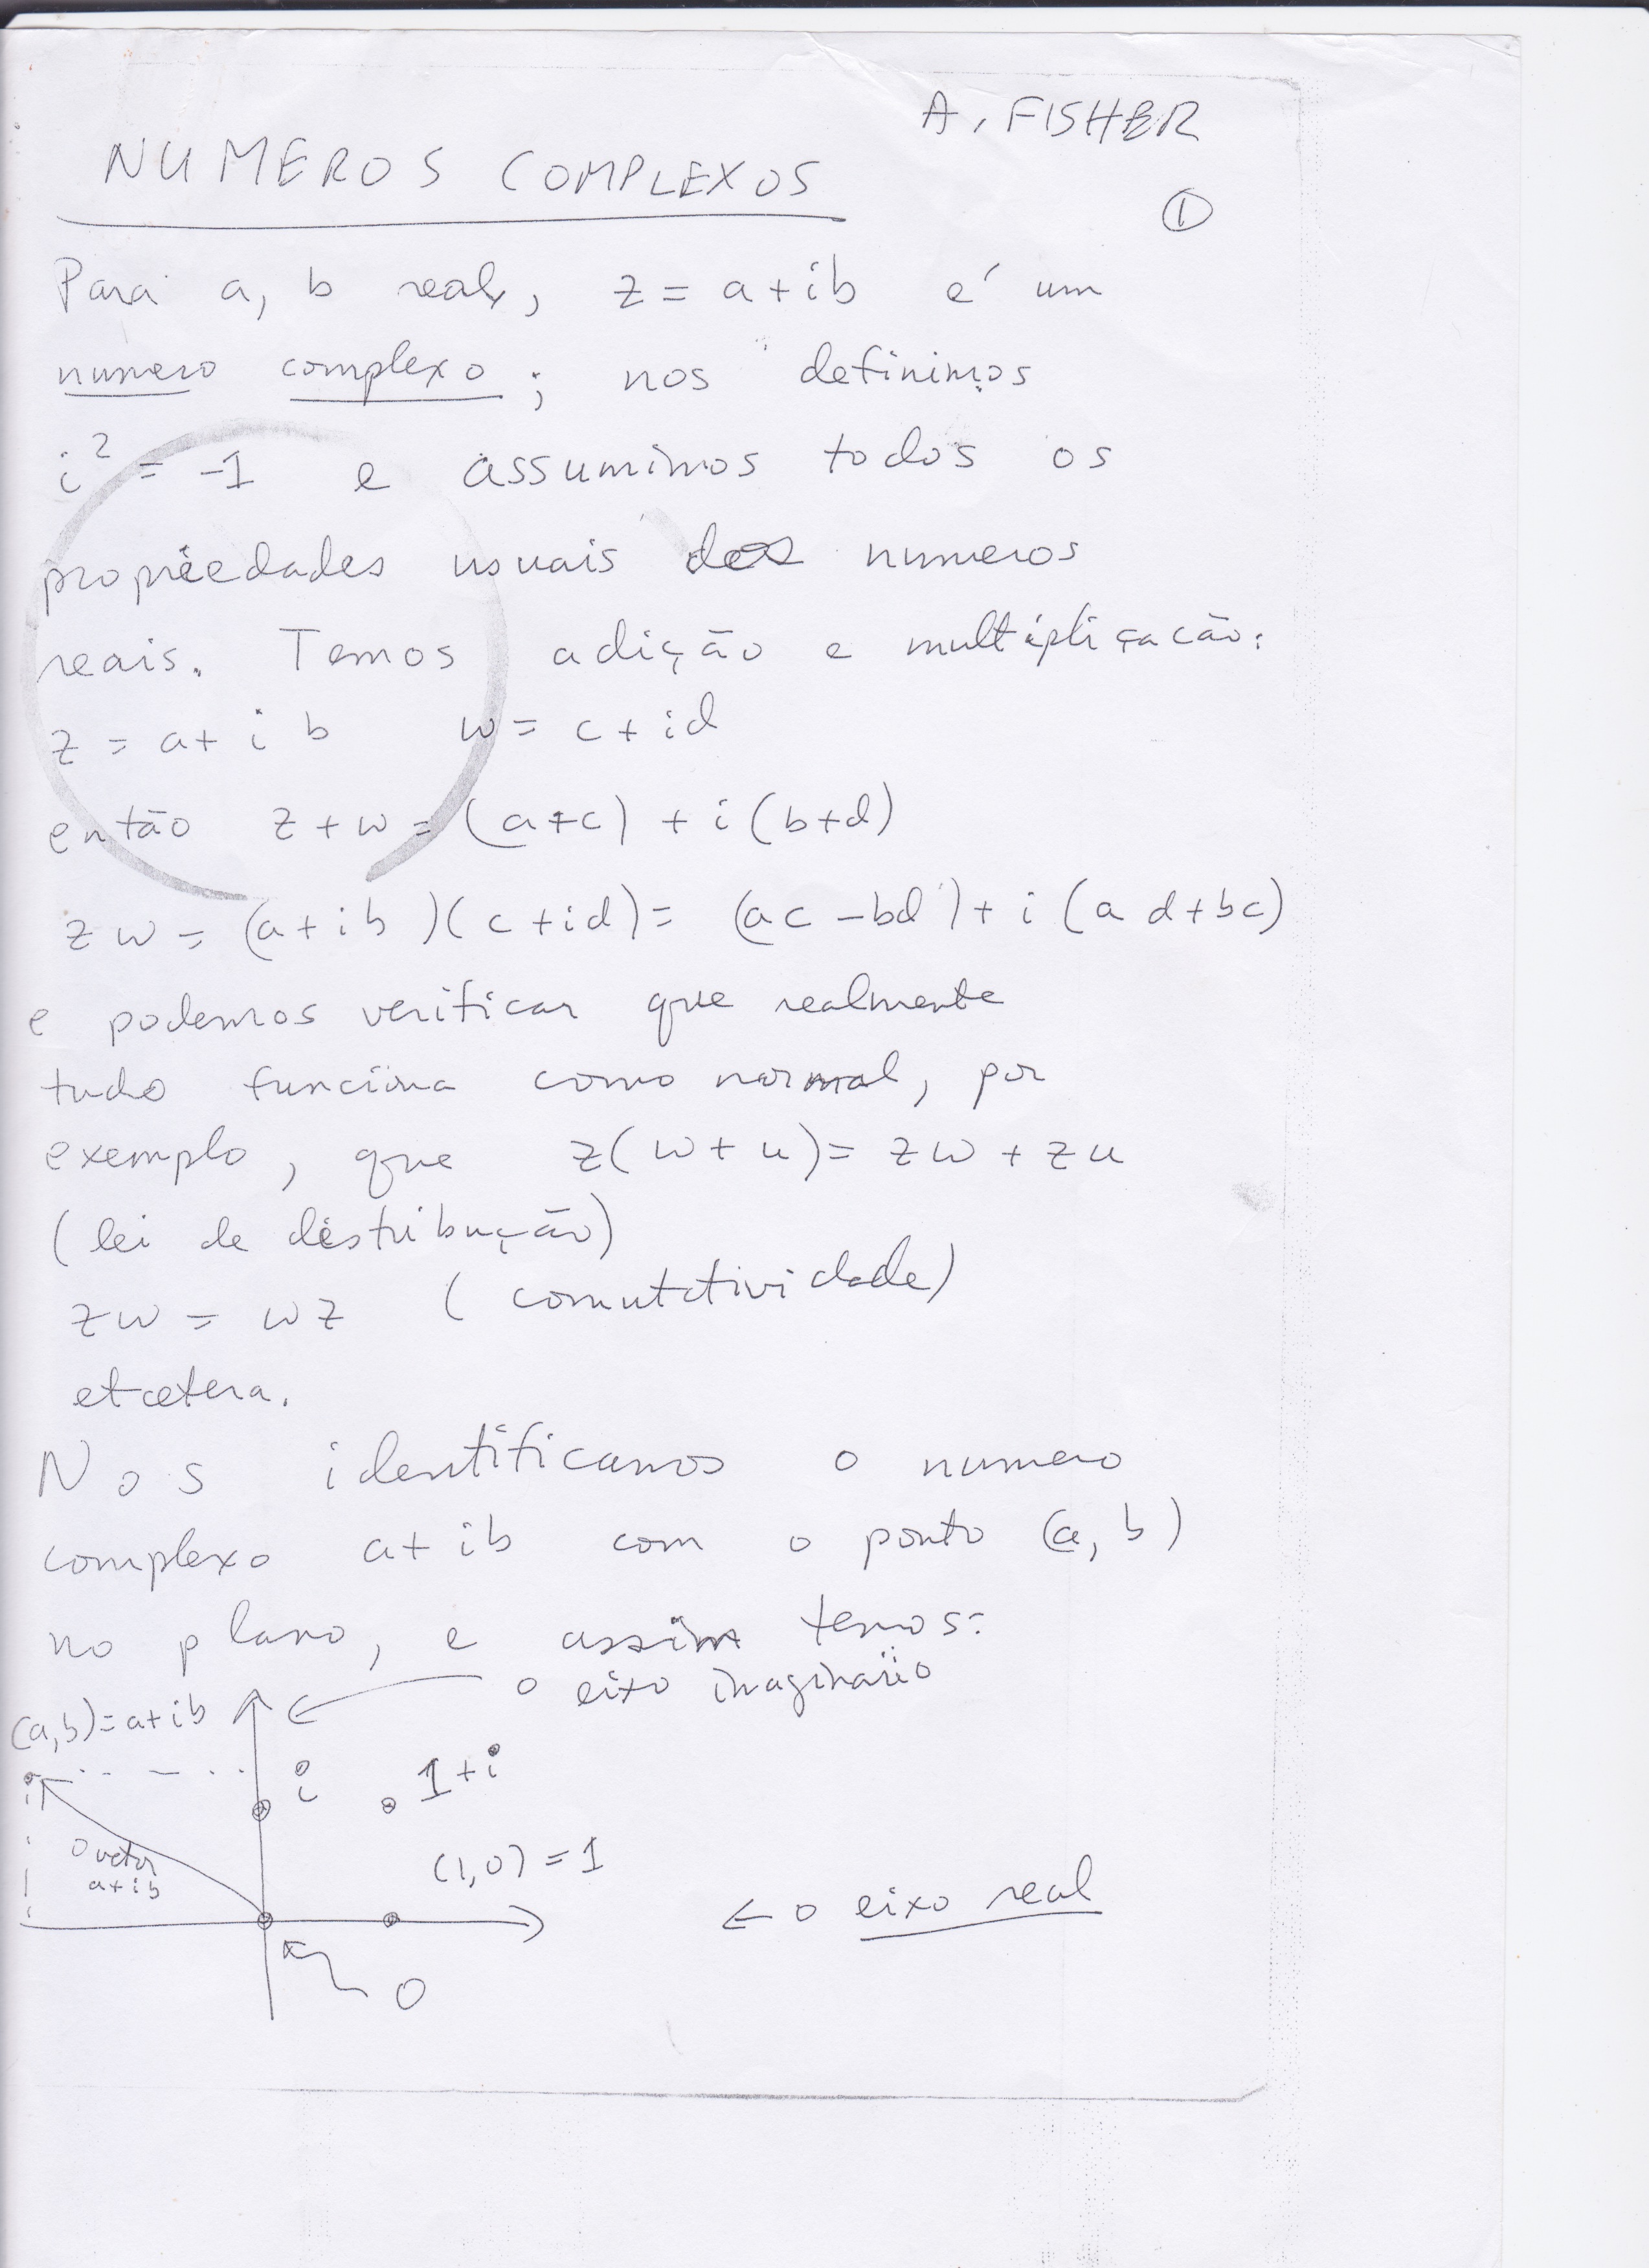 A. FISHER
NUMEROS COMPLEXOS
①
Para a, b real, z = a+ib é um
numero complexo ; nos definimos
i² = -1 e assumimos todos os
propriedades usuais dos numeros
reais. Temos adição e multipliçacão:
z = a+ i b w = c + id
então z + w = (a+c) + i (b+d)
z w = (a+ib)(c+id) = (ac - bd) + i (ad+bc)
e podemos verificar que realmente
tudo funciona como normal, por
exemplo, que z(w+u) = zw + zu
(lei de distribução)
zw = wz (comutatividade)
etcetera.
Nos identificamos o numero
complexo a+ib com o ponto (a, b)
no plano, e assim temos:
o eixo imaginario
(a,b)=a+ib
i 1+i
o vetor
a+ib
(1,0) = 1
← o eixo real
0